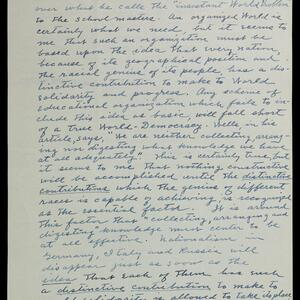 over what he calls the "insistent World Problem
to the school masters. An organized World is
certainly what we need, but it seems to
me that such an organization must be
based upon the idea that every nation,
because of its geographical position and
the racial genius of its people, has a dis-
tinctive contribution to make to World
solidarity and progress. Any scheme of
educational organization which fails to in-
clude this idea as basic, will fall short
of a true World-Democracy. Wells, in his
article, says, "We are neither collecting, arrang-
ing nor digesting what knowledge we have
at all adequately." This is certainly true, but
it seems to me that nothing constructive
will be accomplished until the distinctive
contributions which the genius of different
races is capable of achieving is recognized
as the essential factor. It is around
this factor that "collecting, arranging and
digesting" knowledge must center to be
at all effective. Nationalism in
Germany, Italy and Russia, will
disappear just as soon as the
idea that each of them has such
a distinctive contribution to make to
solidarity is allowed to take its place